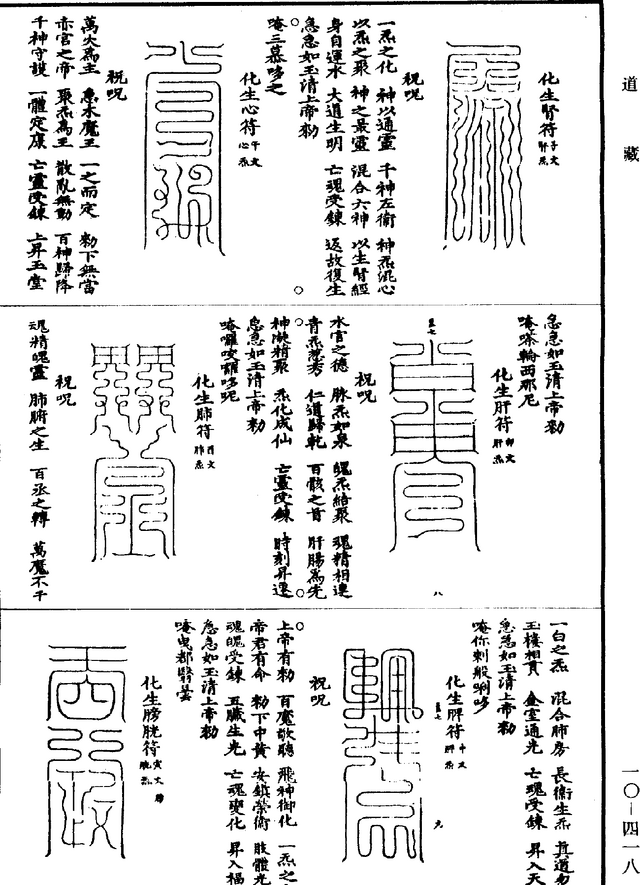 道藏
化生腎符 子文 腎炁
祝呪
一炁之化 神以通靈 千神左衛 神炁混心
以炁之聚 神之最靈 混合六神 以生腎經
身自運水 大道生明 亡魂受鍊 返故復生
急急如玉清上帝勑
唵三慕哆之
化生心符 午文 心炁
祝呪
萬火為主 急水魔王 一之而定 勑下無當
赤宮之帝 聚炁為王 散亂無動 百神歸降
千神守護 一體定康 亡靈受鍊 上昇玉堂
急急如玉清上帝勑
唵嗏輪西那尼
化生肝符 卯文 肝炁
祝呪
水宮之德 脉炁如泉 魄炁結聚 魂精相連
青炁葱秀 仁道歸乾 百骸之首 肝腸為先
神漩精聚 炁化成仙 亡靈受鍊 時刻昇遷
急急如玉清上帝勑
唵囉咬囉哆呢
化生肺符 酉文 肺炁
祝呪
魂精魄靈 肺腑之生 百丞之轉 萬魔不干
一白之炁 混合肺房 長衛生炁 真道
玉樓相貫 金室通光 亡魂受鍊 昇入天
急急如玉清上帝勑
唵你刺般唎哆
化生脾符 中文 脾炁
祝呪
上帝有勑 百魔敬聽 飛神御化 一炁之
帝君有命 勑下中黃 安鎮榮衛 肢體光
魂魄受鍊 五臟生光 亡魂變化 昇入福
急急如玉清上帝勑
唵曳都翳曇
化生膀胱符 寅文 膀胱炁
一〇—四一八